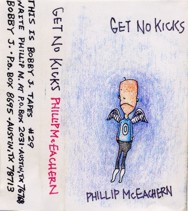 GET NO KICKS
PHILLIP McEACHERN
GET NO KICKS PHILLIP McEACHERN
THIS IS BOBBY J. TAPES #29
WRITE PHILLIP M. AT P.O. BOX 2031 · AUSTIN, TX
BOBBY J. · P.O. BOX 8695 · AUSTIN, TX 78713